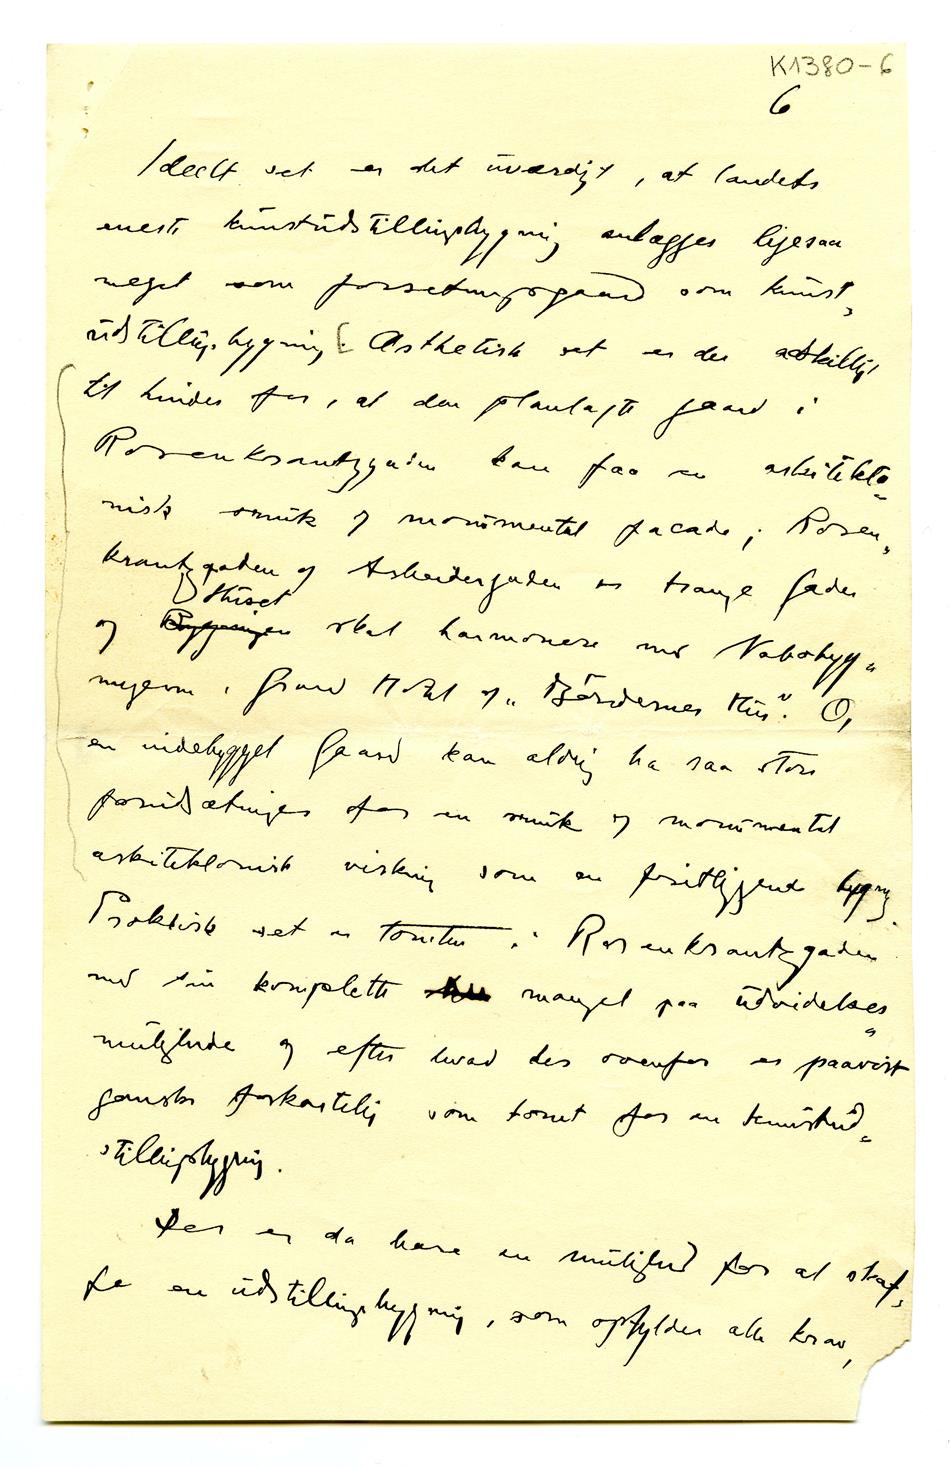 K1380-6
6
Ideelt set er det uværdigt, at landets
eneste kunstudstillingsbygning anlægges ligesaa
meget som forretningsgaard som kunst-
udstillingsbygning. [Æsthetisk set er der adskilligt
til hinder for, at den planlagte gaard i
Rosenkrantzgaden kan faa en arkitekto-
nisk smuk og monumental facade; Rosen-
krantzgaden og Arbeidergaden er trange Gader
Huset
og Bygningen skal harmonere med Nabobyg-
ningerne, Grand Hotel og „Bøndernes Hus". Og
en indebygget Gaard kan aldrig ha saa store
forudsætninger for en smuk og monumental
arkitektonisk virkning som en fritliggende bygning.
Praktisk set er tomten i Rosenkrantzgaden
med sin komplette mangel paa udvidelses-
muligheder og efter hvad der ovenfor er paavist
ganske forkastelig som tomt for en kunstud-
stillingsbygning.
Der er da bare en mulighed for at skaf-
fe en udstillingsbygning, som opfylder alle krav,